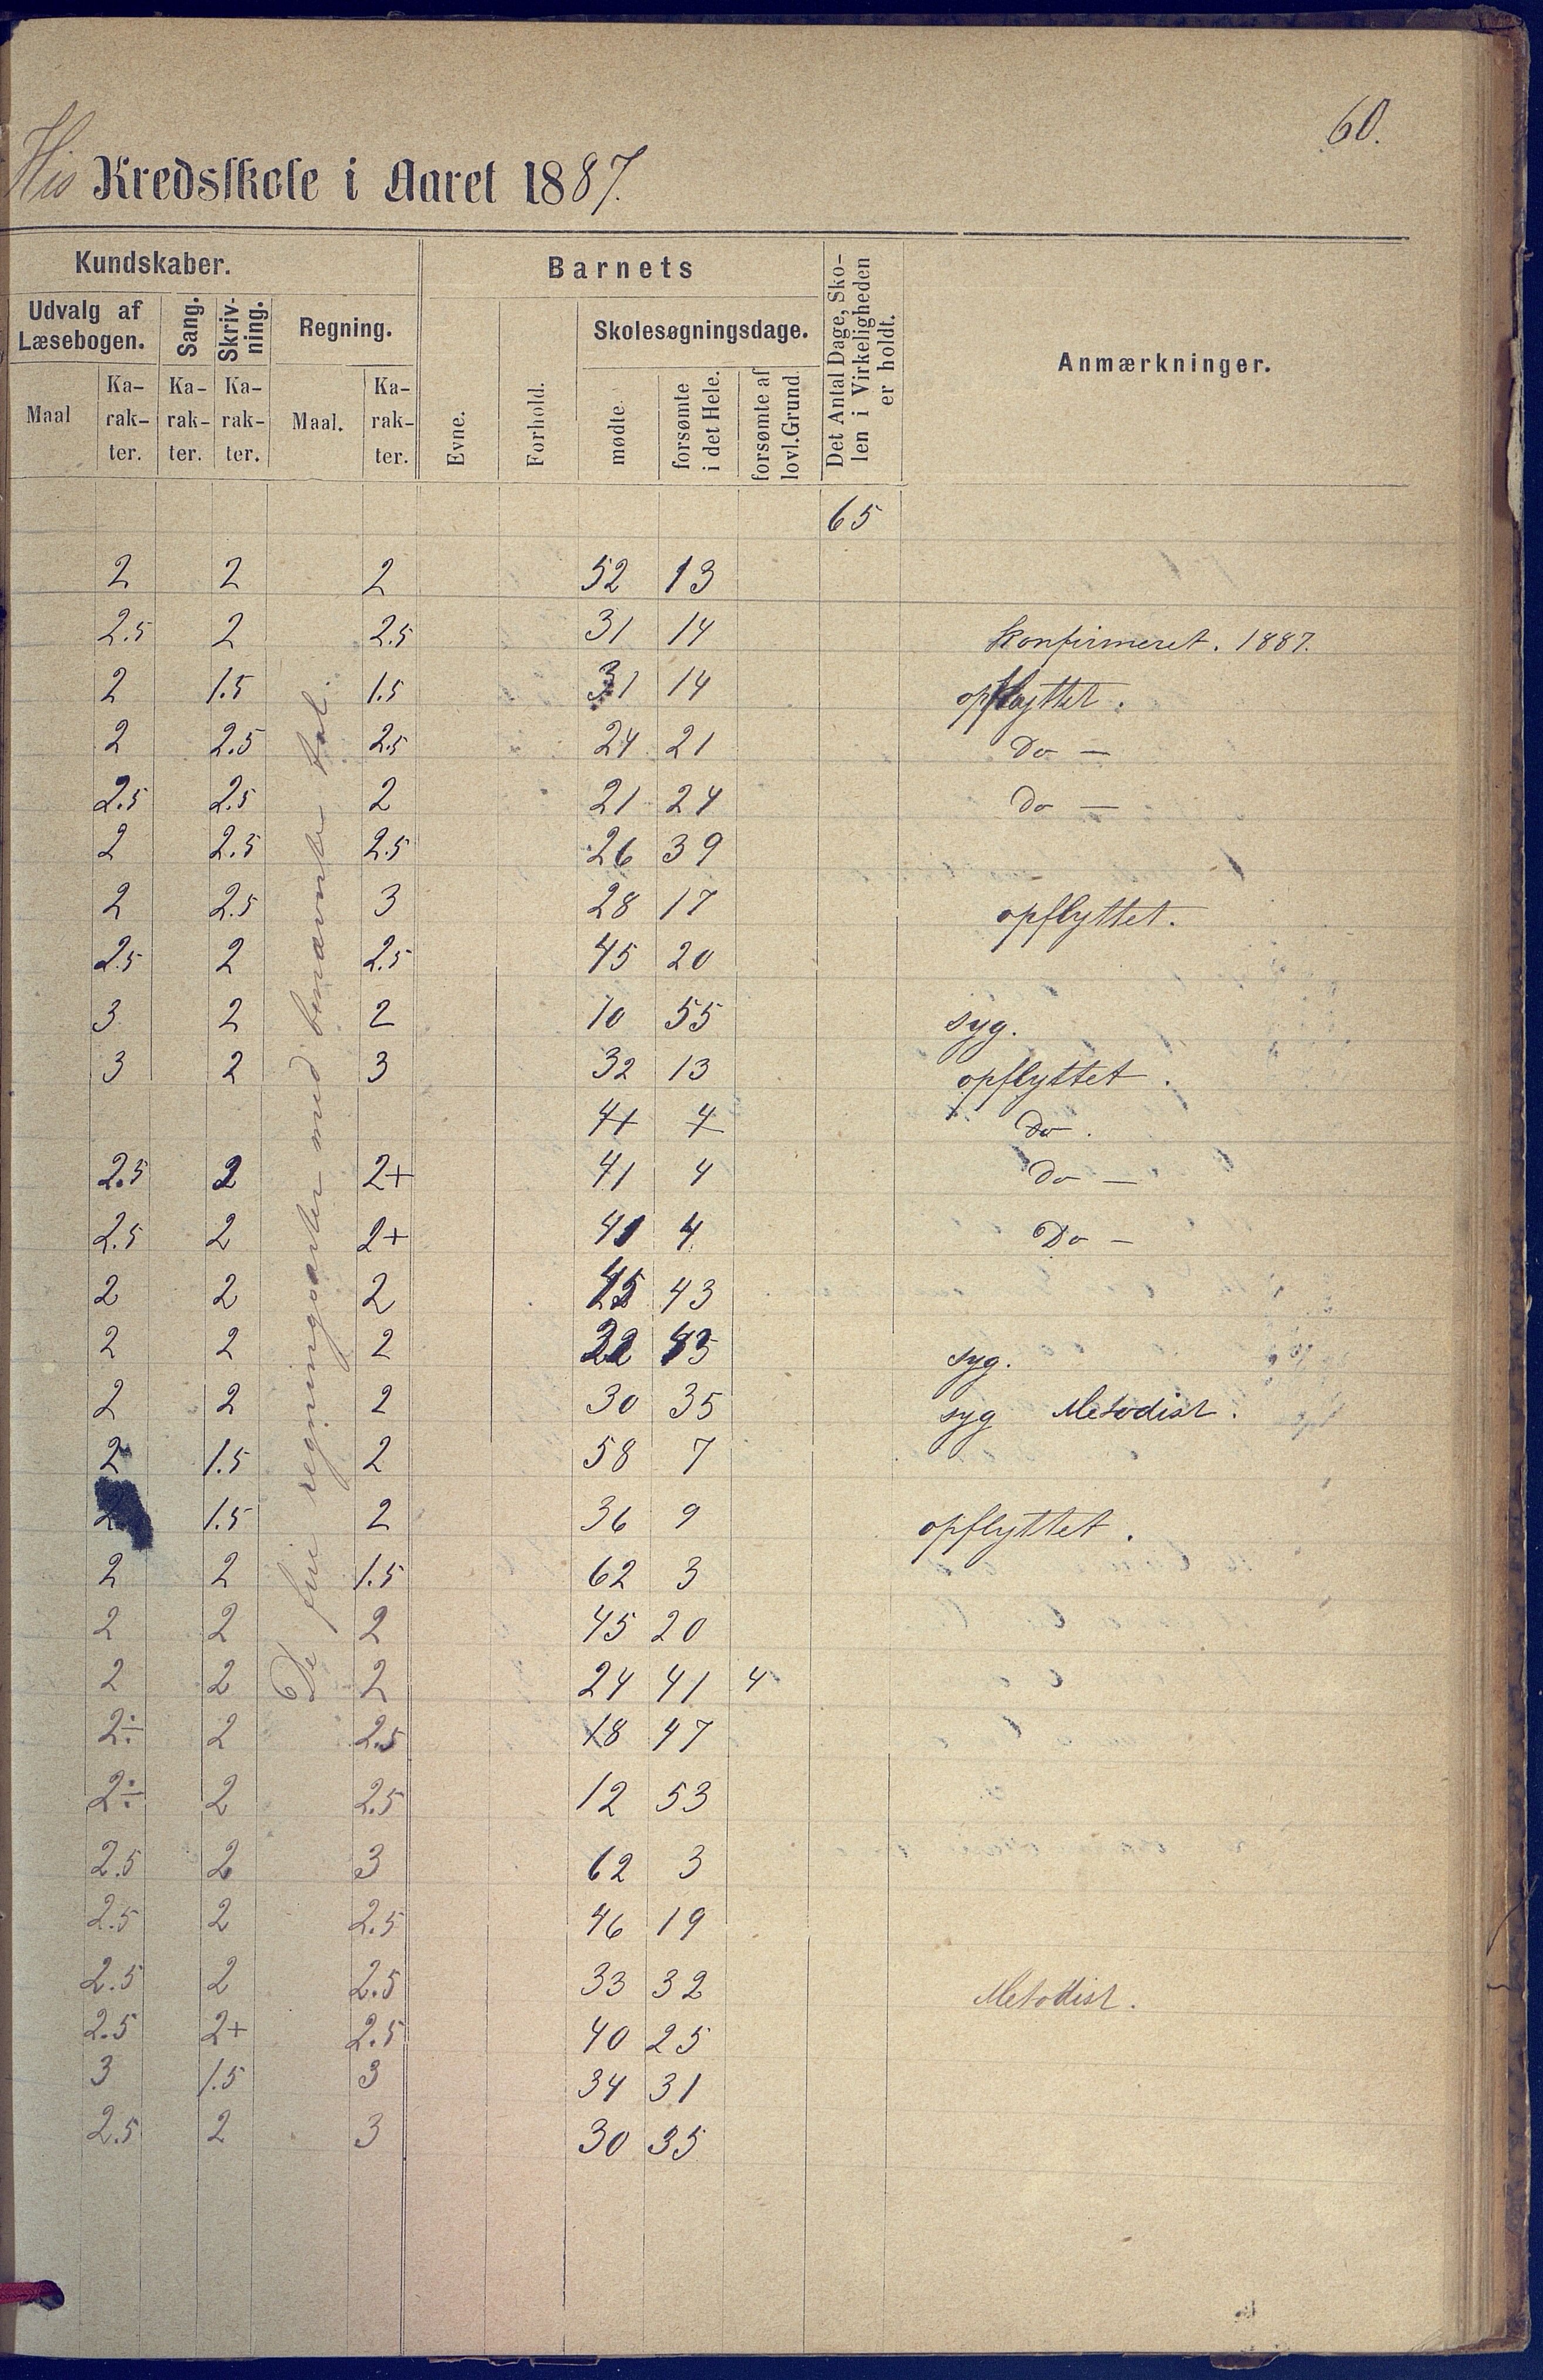 60.
His Kredsskole i Aaret 1887.
Kundskaber. Barnets Det Antal Dage, Sko-
len i Virkeligheden
er holdt. Anmærkninger.
Udvalg af
Læsebogen. Sang. Skriv-
ning. Regning. Evne. Forhold. Skolesøgningsdage.
Maal Ka-
rak-
ter. Ka-
rak-
ter. Ka-
rak-
ter. Maal. Ka-
rak-
ter. mødte forsømte
i det Hele. forsømte af
lovl. Grund.
65
2 2 2 52 13
2.5 2 2.5 31 14 Konfirmeret. 1887.
2 1.5 1.5 31 14 opflyttet.
2 2.5 2.5 24 21 Do —
2.5 2.5 2 21 24 Do —
2 2.5 2.5 26 39
2 2.5 3 28 17 opflyttet.
2.5 2 2.5 45 20
3 2 2 10 55 syg.
3 2 3 32 13 opflyttet.
41 4 Do.
2.5 2 2+ 41 4 Do —
2.5 2 2+ 41 4 Do —
2 2 2 43
2 2 2 22 43 syg.
2 2 2 30 35 syg Metodist.
2 1.5 2 58 7
2 1.5 2 36 9 opflyttet.
2 2 1.5 62 3
2 2 2 45 20
2 2 2 24 41 4
2÷ 2 2.5 18 47
2÷ 2 2.5 12 53
2.5 2 3 62 3
2.5 2 2.5 46 19
2.5 2 2.5 33 32 Metodist.
2.5 2+ 2.5 40 25
3 1.5 3 34 31
2.5 2 3 30 35
De fire regningsarter med benævnte tal.